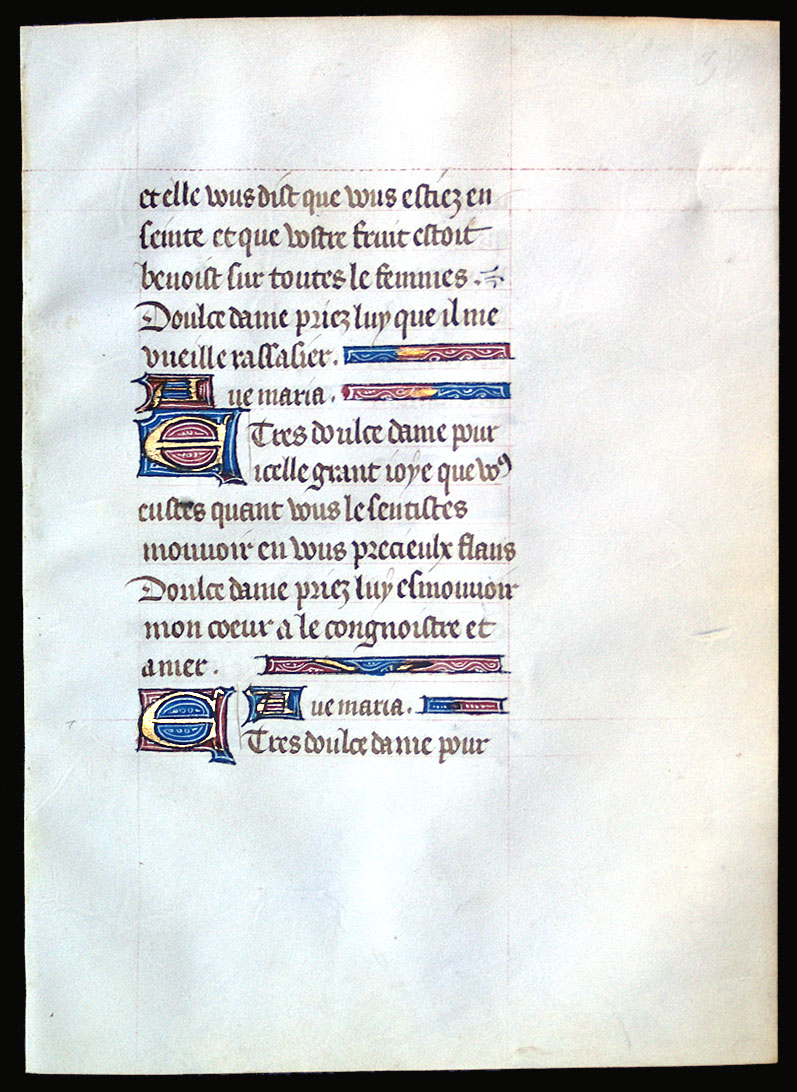 et elle vous dist que vous estiez en
seinte et que vostre fruit estoit
benoist sur toutes le femmes.
Doulce dame priez luy que il me
vueille rassasier.
Aue maria.
E Tres doulce dame pour
icelle grant ioye que vo⁹
eustes quant vous le sentistes
mouuoir en vous precieulx flans
Doulce dame priez luy esmouuoir
mon coeur a le congnoistre et
amer.
Aue maria.
E Tres doulce dame pour